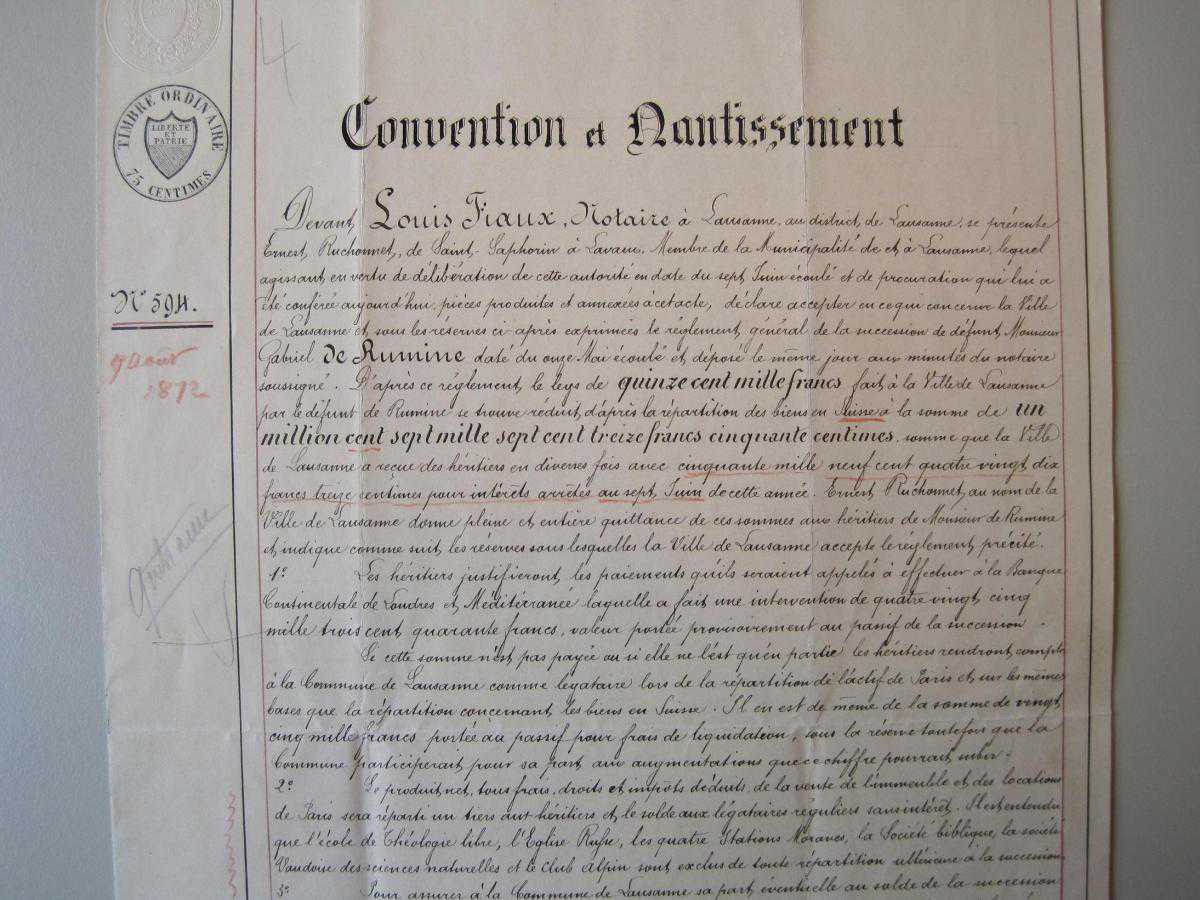 4
Convention et Nantissement
TIMBRE ORDINAIRE
LIBERTÉ
ET
PATRIE
75 CENTIMES
Devant Louis Fiaux, Notaire à Lausanne, au district de Lausanne, se présente
Ernest Ruchonnet, de Saint-Saphorin à Lavaux, Membre de la Municipalité de et à Lausanne, lequel
agissant en vertu de délibération de cette autorité en date du sept Juin écoulé et de procuration qui lui a
été conférée aujourd'hui, pièces produites et annexées à cet acte, déclare accepter en ce qui concerne la Ville
N° 594.
de Lausanne et sous les réserves ci-après exprimées le règlement général de la succession de défunt Monsieur
Gabriel de Rumine daté du onze Mai écoulé et déposé le même jour aux minutes du notaire
9 Août
1872
soussigné. D'après ce règlement le legs de quinze cent mille francs fait à la Ville de Lausanne
par le défunt de Rumine se trouve réduit d'après la répartition des biens en Suisse à la somme de un
million cent sept mille sept cent treize francs cinquante centimes, somme que la Ville
de Lausanne a reçue des héritiers en diverses fois avec cinquante mille neuf cent quatre vingt dix
francs treize centimes pour intérêts arrêtés au sept Juin de cette année. Ernest Ruchonnet, au nom de la
Ville de Lausanne donne pleine et entière quittance de ces sommes aux héritiers de Monsieur de Rumine
et indique comme suit les réserves sous lesquelles la Ville de Lausanne accepte le règlement précité.
1° Les héritiers justifieront les paiements qu'ils seraient appelés à effectuer à la Banque
Continentale de Londres et Méditérranée laquelle a fait une intervention de quatre vingt cinq
mille trois cent quarante francs, valeur portée provisoirement au passif de la succession.
Si cette somme n'est pas payée ou si elle ne l'est qu'en partie les héritiers rendront compte
à la Commune de Lausanne comme légataire lors de la répartition de l'actif de Paris et sur les mêmes
bases que la répartition concernant les biens en Suisse. Il en est de même de la somme de vingt
cinq mille francs portée au passif pour frais de liquidation, sous la réserve toutefois que la
Commune participerait pour sa part aux augmentations que ce chiffre pourrait subir.
2° Le produit net, tous frais, droits et impôts déduits, de la vente de l'immeuble et des locations
de Paris sera réparti un tiers aux héritiers et le solde aux légataires réguliers sans intérêt. Il est entendu
que l'école de Théologie libre, l'Eglise Russe, les quatre Stations Moraves, la Société biblique, la société
Vaudoise des sciences naturelles et le Club Alpin sont exclus de toute répartition ultérieure à la succession.
3° Pour assurer à la Commune de Lausanne sa part éventuelle au solde de la succession